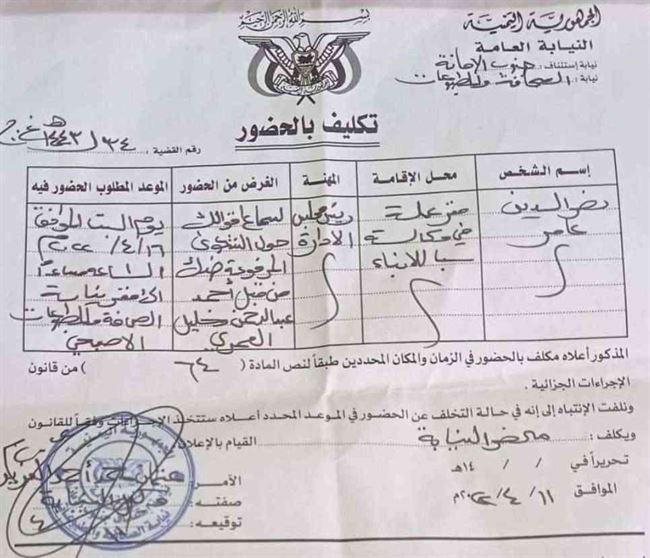 بسم الله الرحمن الرحيم
الجمهورية اليمنية
النيابة العامة
نيابة إستئناف: جنوب الامانة
نيابة: الصحافة والمطبوعات
تكليف بالحضور
رقم القضية: ٣٤ / ١٤٤٣هـ غ ج
إسم الشخص محل الإقامة المهنة الغرض من الحضور الموعد المطلوب الحضور فيه
نصر الدين مقر عمله رئيس مجلس لسماع اقوالك يوم السبت الموافق
عامر في وكالة الادارة حول الشكوى ١٦/٤/٢٠٢٢م
سبا للانباء المرفوعة ضدك
من قبل أحمد الى مقر نيابة
عبدالرحمن وخليل الصحافة والمطبوعات
العمري الاصبحي
المذكور أعلاه مكلف بالحضور في الزمان والمكان المحددين طبقاً لنص المادة ( ٦٤ ) من قانون
الإجراءات الجزائية.
ونلفت الإنتباه إلى إنه في حالة التخلف عن الحضور في الموعد المحدد أعلاه ستتخذ الإجراءات وفقاً للقانون
ويكلف: محضر النيابة القيام بالإعلان
تحريراً في / / ١٤هـ
الموافق ١١/٤/٢٠٢٢م
الآمر:
صفته:
توقيعه: